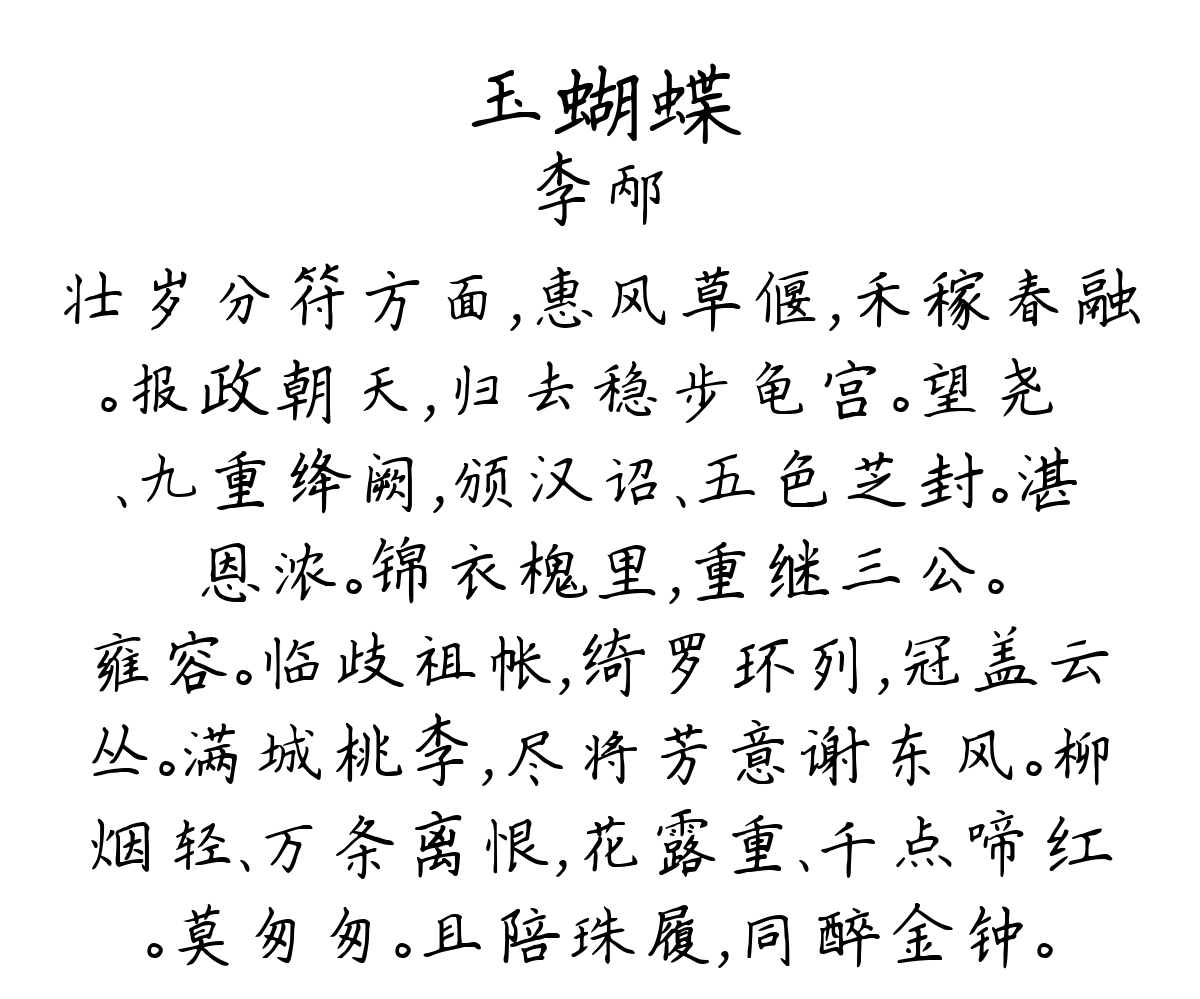 玉蝴蝶
李邴
壮岁分符方面,惠风草偃,禾稼春融
。报政朝天,归去稳步龟宫。望尧
、九重绛阙,颁汉诏、五色芝封。湛
恩浓。锦衣槐里,重继三公。
雍容。临歧祖帐,绮罗环列,冠盖云
丛。满城桃李,尽将芳意谢东风。柳
烟轻、万条离恨,花露重、千点啼红
。莫匆匆。且陪珠履,同醉金钟。